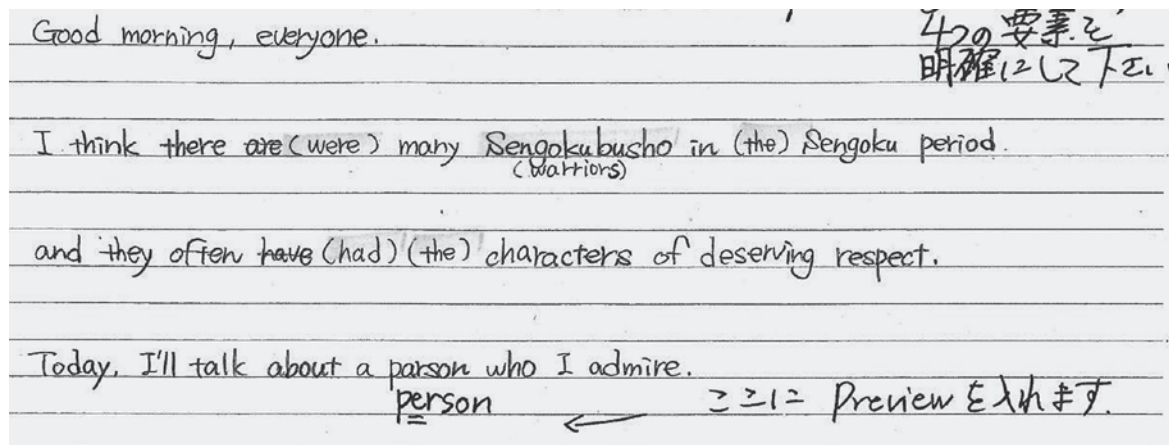 Good morning, everyone.
4つの要素を
明確にして下さい
I think there are (were) many Sengokubusho in (the) Sengoku period.
(warriors)
and they often have (had) (the) characters of deserving respect.
Today, I'll talk about a parson who I admire.
person ← ここに Previewを入れます.